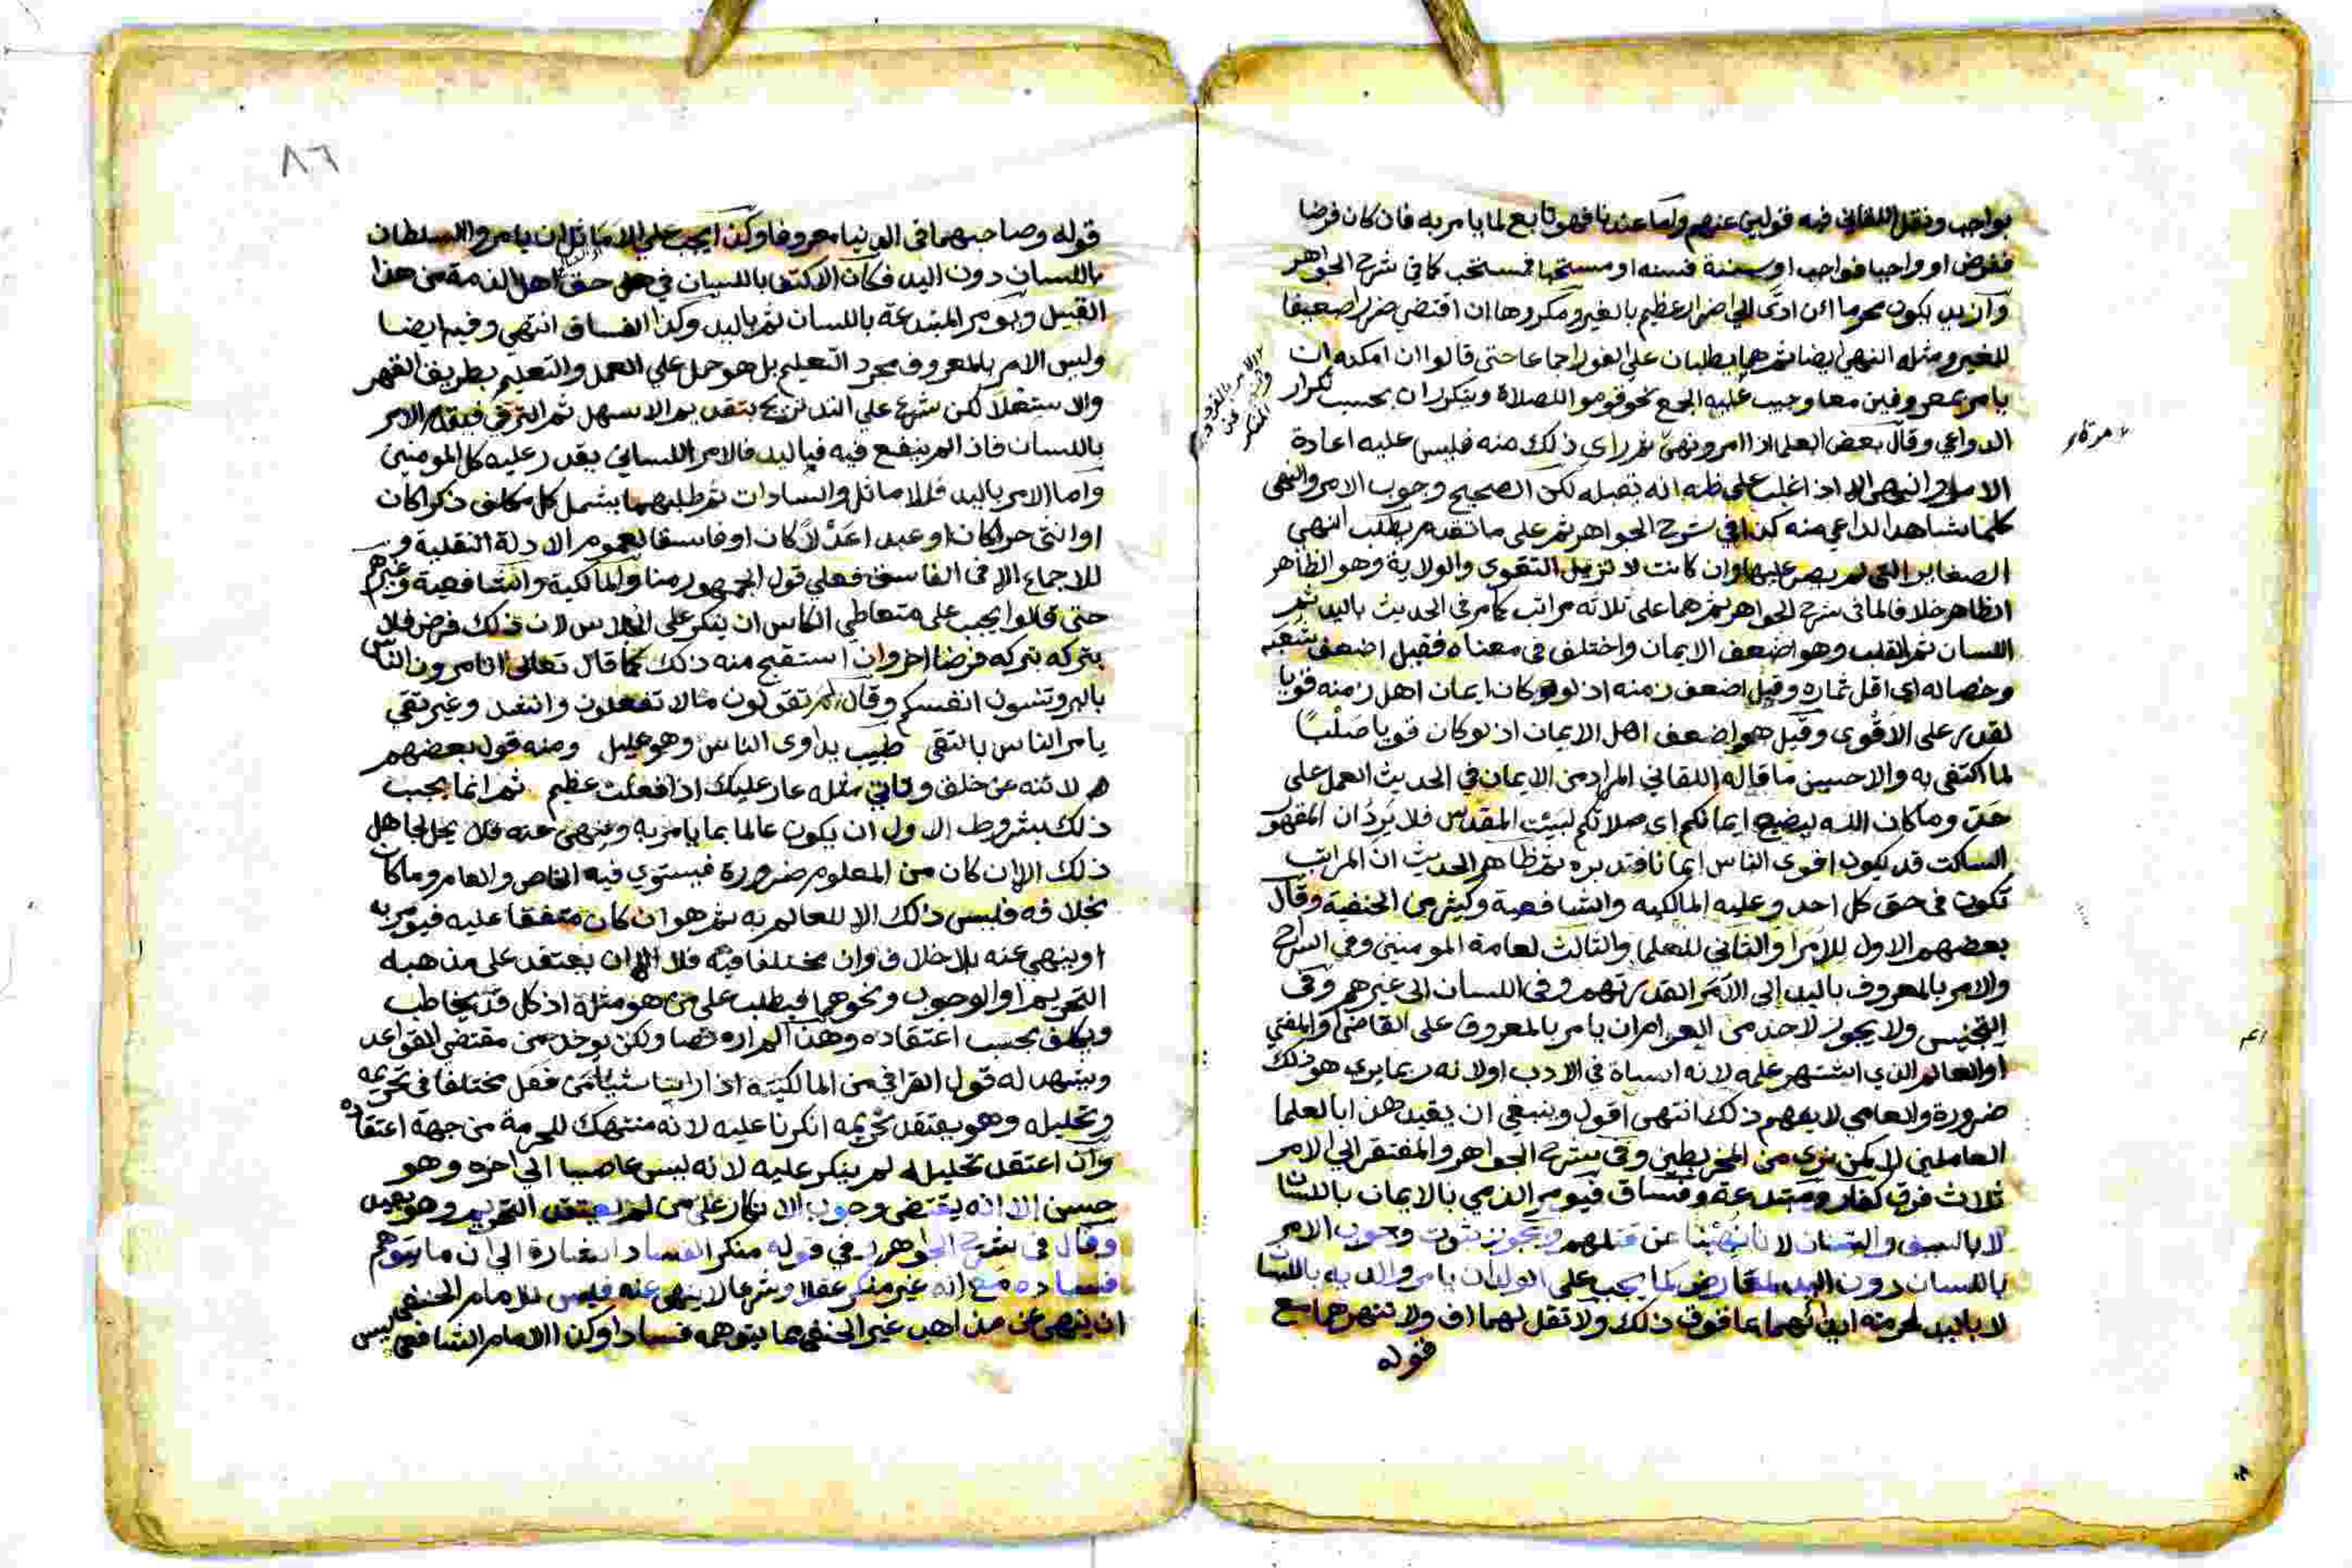 بواجب ونقل اللقاني فيه قولين عنهم واما عندنا فهو تابع لما يامر به فان كان فرضا
ففرض او واجبا فواجب او سنة فسنه او مستحبا فمستحب كما في شرح الجواهر
وازيد يكون محرما ان ادى الي اضرار عظيم بالغير ومكروها ان اقتضي ضررا ضعيفا
للغير ومثله النهي ايضا ثم هما يطلبان علي الفور اجماعا حتى قالوا ان امكنه ان
يامر بمعروفين معا وجب عليه الجمع نحو قوموا للصلاة ويتكرران بحسب تكرار
الدواعي وقال بعض العلما اذا امر ونهى ثم راى ذلك منه فليس عليه اعادة
مرة
الامر والنهي الا اذا غلب على ظنه انه يقبله لكن الصحيح وجوب الامر والنهي
كلما شاهد الداعي منه كذا في شرح الجواهر ثم على ما تقدم يطلب النهي
الصغاير التي لم يصر عليها وان كانت لا تزيل التقوى والولاية وهو الظاهر
الظاهر خلافا لما في شرح الجواهر ثم هما على ثلاثه مراتب كما مر في الحديث باليد ثم
اللسان ثم القلب وهو اضعف الايمان واختلف في معناه فقيل اضعف شعبه
وخصاله اي اقل ثماره وقيل اضعف زمنه اذ لو كان ايمان اهل زمنه قويا
لقدر على الاقوى وقيل هو اضعف اهل الايمان اذ لو كان قويا صلبا
لما اكتفى به والاحسن ما قاله اللقاني المراد من الايمان في الحديث العمل على
حد وما كان الله ليضيع ايمانكم اي صلاتكم لبيت المقدس فلا يرد ان المقهور
الساكت قد يكون اقوى الناس ايمانا فتدبره ثم ظاهر الحديث ان المراتب
تكون في حق كل احد وعليه المالكيه والشافعية وكثير من الحنفية وقال
بعضهم الاول للامرا والثاني للعلما والثالث لعامة المومنين وفي السراج
والامر بالمعروف باليد إلى الامرا لقدرتهم وفي اللسان الى غيرهم وفى
التجنيس ولا يجوز لاحد من العوام ان يامر بالمعروف على القاضي والمفتي
او العالم الذي اشتهر علمه لانه اساة في الادب او لانه ربما يري هو ذلك
ضرورة والعامي لا يفهم ذلك انتهى اقول وينبغي ان يقيد هذا بالعلما
العاملين وفى شرح الجواهر والمفتقر الي الامر
ثلاث فرق كفار ومبتدعة وفساق فيومر الذمي بالايمان باللسان
لا بالسيف والسنان لانا نهينا عن قتلهم ويجوز ثبوت وجوب الامر
باللسان دون اليد لمعارض كما يجب على الولد ان يامر والديه باللسان
لا باليد لحرمة ايذائهما بما فوق ذلك ولا تقل لهما اف ولا تنهرهما مع
قوله
٨٦
قوله وصاحبهما في الدنيا معروفا وكذا يجب علي الاماثل ان يامروا السلطان
باللسان دون اليد فكان الاكتفا باللسان في حق اهل الذمة من هذا
القبيل ويومر المبتدعة باللسان ثم باليد وكذا الفساق انتهي وفيه ايضا
وليس الامر بالمعروف مجرد التعليم بل هو حمل علي العمل والتعليم بطريق القهر
والاستعلا لكن شرع علي التدريج بتقديم الاسهل ثم الترقي فيقدم الامر
باللسان فاذا لم ينفع فيه فباليد فالامر اللساني يقدر عليه كل المومنين
واما الامر باليد فللاماثل والسادات ثم طلبهما يشمل كل مكلف ذكرا كان
او انثى حرا كان او عبدا عدلا كان او فاسقا لعموم الادلة النقلية و
للاجماع الا في الفاسق فعلي قول الجمهور منا والمالكية والشافعية وغيرهم
حتى قالوا يجب على متعاطي الكاس ان ينكر على الجلاس لان ذلك فرض فلا
يتركه بتركه فرضا اخر وان استقبح منه ذلك كما قال تعالى اتامرون الناس
بالبر وتنسون انفسكم وقال لم تقولون مالا تفعلون وانشد وغير تقي
يامر الناس بالتقى طبيب يداوى الناس وهو عليل ومنه قول بعضهم
لا تنه عن خلق وتاتي مثله عار عليك اذا فعلت عظيم ثم انما يجب
ذلك بشروط الاول ان يكون عالما بما يامر به وينهى عنه فلا يحل لجاهل
ذلك الا ان كان من المعلوم ضرورة فيستوي فيه الخاص والعام وما كان
بخلافه فليس ذلك الا للعالم به ثم هو ان كان متفقا عليه فيومر به
او ينهي عنه بلا خلاف وان مختلفا فيه فلا الا ان يعتقد على مذهبه
التحريم او الوجوب ونحوهما فيطلب على من هو مثله اذ كل قد يخاطب
ويكلف بحسب اعتقاده وهذا لم اره نصا ولكن يوخذ من مقتضى القواعد
ويشهد له قول القرافي من المالكية اذا راينا شيئا من فعل مختلفا في تحريمه
وتحليله وهو يعتقد تحريمه انكرنا عليه لانه منتهك للحرمة من جهة اعتقاده
وان اعتقد تحليله لم ينكر عليه لانه ليس عاصيا الي اخره وهو
حسن الا انه يقتضى وجوب الانكار على من لم يعتقد التحريم وهو بعيد
وقال في شرح الجواهر في قوله منكر الفساد اشارة الي ان ما يتوهم
فساده مع انه غير منكر عقلا وشرعا لا ينهي عنه فليس للامام الحنفي
ان ينهي عن مذاهب غير الحنفي مما يتوهمه فسادا وكذا الامام الشافعي ليس